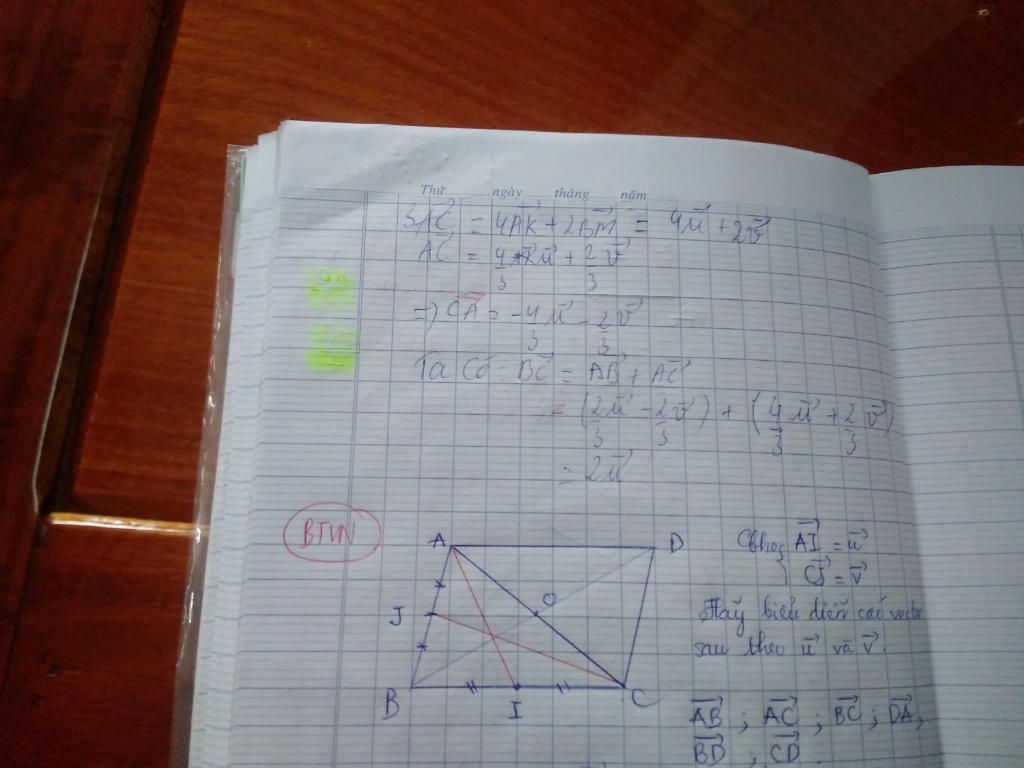 Thứ ......... ngày ....... tháng ....... năm .......
3AC⃗ = 4AK⃗ + 2BM⃗ = 4u⃗ + 2v⃗
AC⃗ = 4/3 u⃗ + 2/3 v⃗
=) CA⃗ = -4/3 u⃗ - 2/3 v⃗
Ta Có : BC⃗ = AB⃗ + AC⃗
= (2/3 u⃗ - 2/3 v⃗) + (4/3 u⃗ + 2/3 v⃗)
= 2u⃗
BTVN
A D
O
J
B I C
Cho { AI⃗ = u⃗
CJ⃗ = v⃗
Hãy biểu diễn các vecto
sau theo u⃗ và v⃗.
AB⃗ ; AC⃗ ; BC⃗ ; DA⃗,
BD⃗ ; CD⃗.